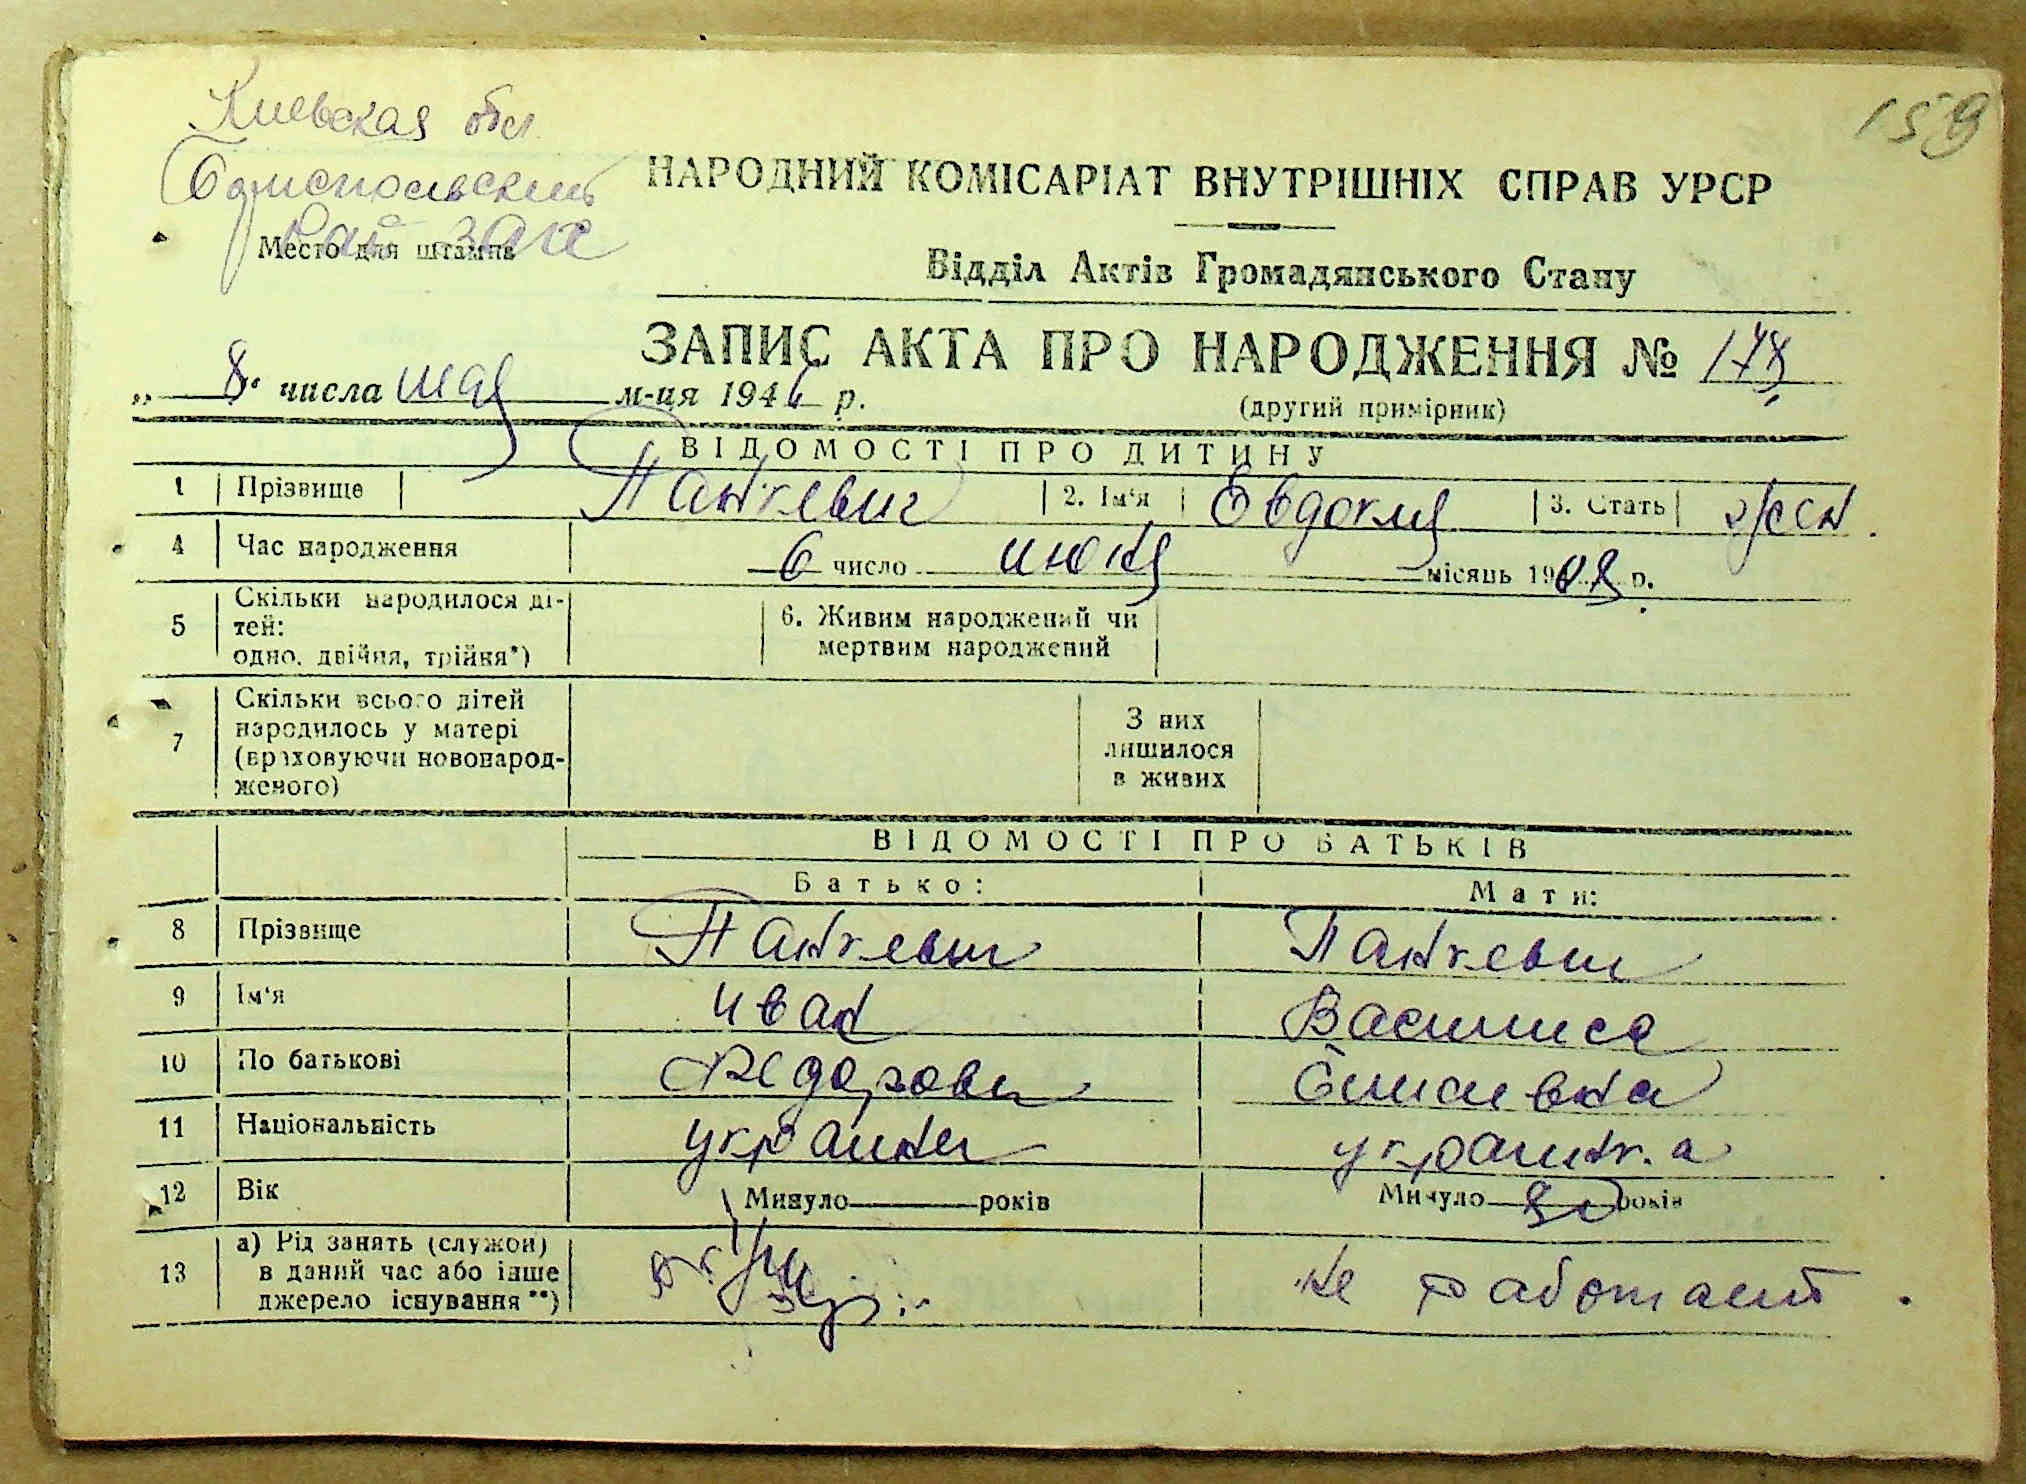 159
Киевская обл
Бориспольский
рай ЗАГС
Место для штампа
НАРОДНИЙ КОМІСАРІАТ ВНУТРІШНІХ СПРАВ УРСР
Відділ Актів Громадянського Стану
ЗАПИС АКТА ПРО НАРОДЖЕННЯ № 178
„ 8 “ числа мая м-ця 194 р.
(другий примірник)
ВІДОМОСТІ ПРО ДИТИНУ
1 Прізвище Панкевич 2. Ім'я Евдокия 3. Стать жен
4 Час народження 6 число июня місяць 1908 р.
5 Скільки народилося ді-
тей:
одно, двійня, трійня*)
6. Живим народжений чи
мертвим народжений
7 Скільки всього дітей
народилось у матері
(враховуючи новонарод-
женого)
З них
лишилося
в живих
ВІДОМОСТІ ПРО БАТЬКІВ
Батько: Мати:
8 Прізвище Панкевич Панкевич
9 Ім'я Иван Василиса
10 По батькові Федорович
11 Національність украинец украинка
12 Вік Минуло років Минуло років
13 а) Рід занять (служби)
в даний час або інше
джерело існування **)
не работает